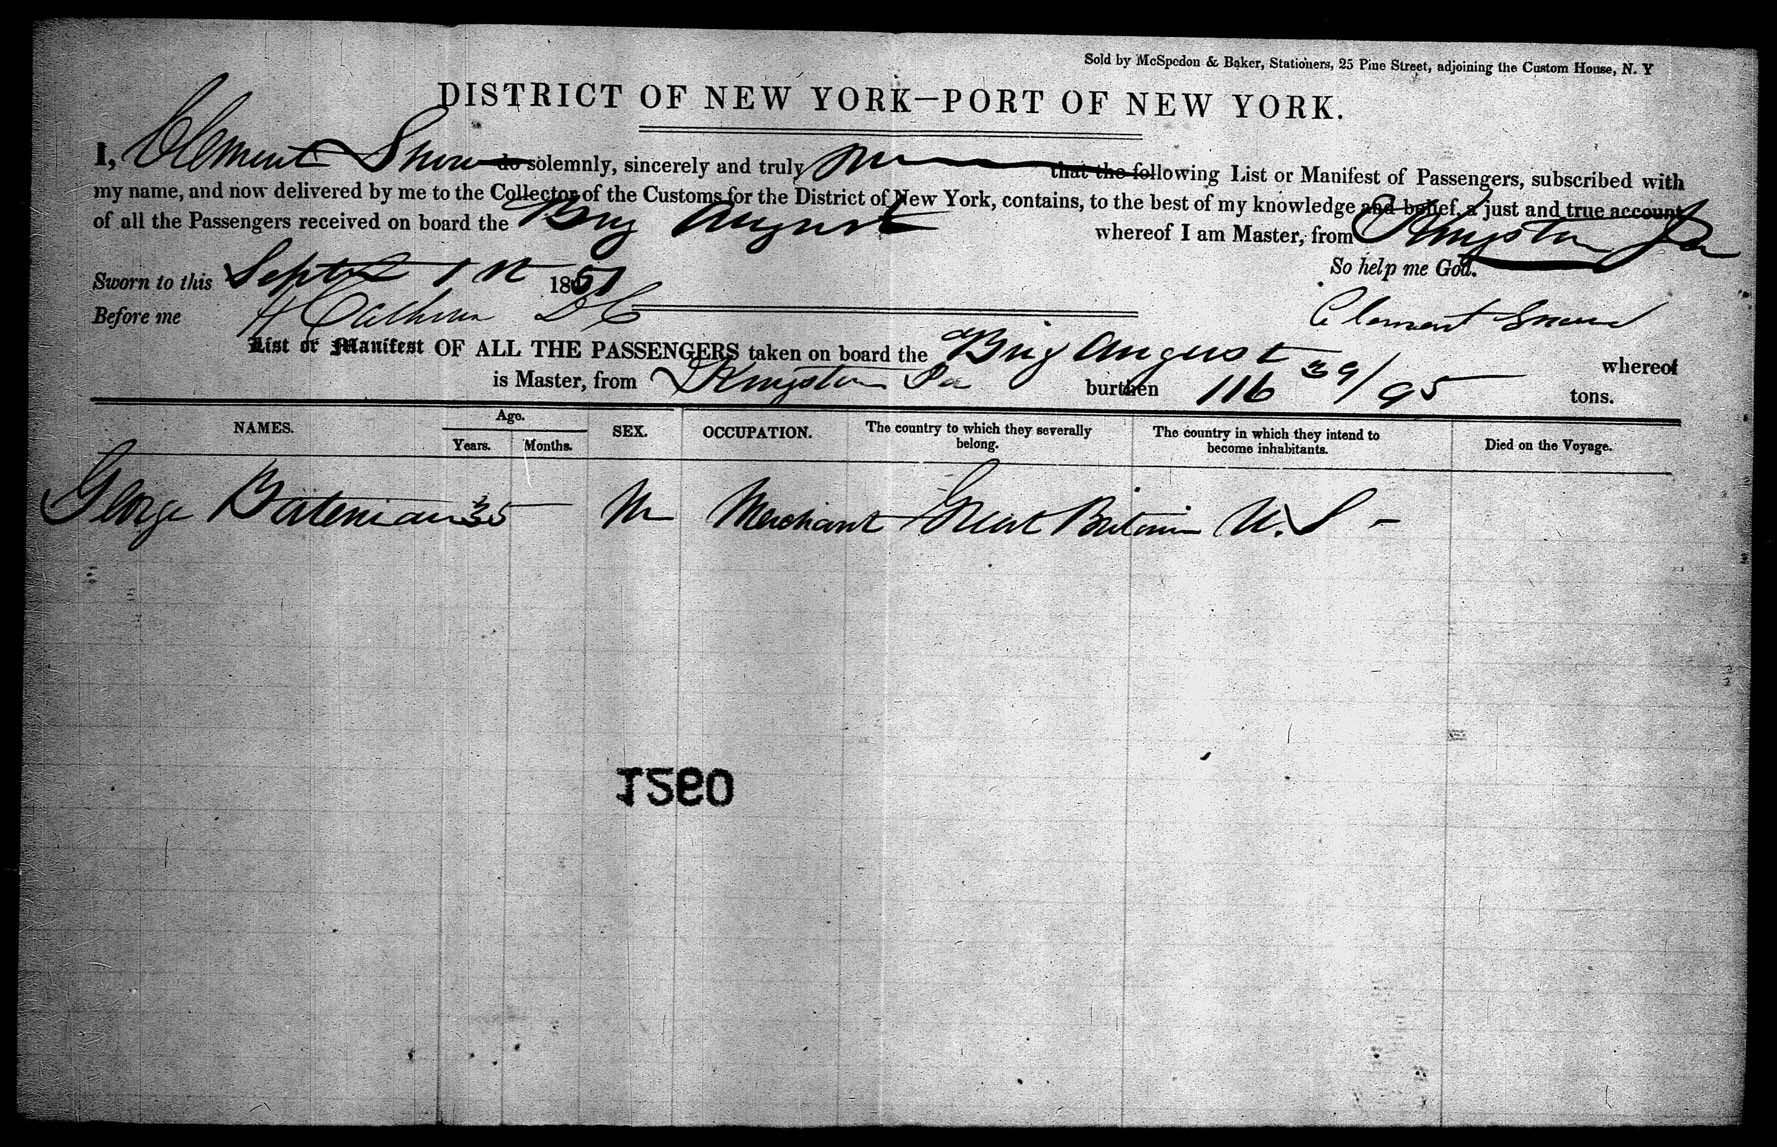 Sold by McSpedon & Baker, Stationers, 25 Pine Street, adjoining the Custom House, N. Y
DISTRICT OF NEW YORK—PORT OF NEW YORK.
I, Clement Snow do solemnly, sincerely and truly that the following List or Manifest of Passengers, subscribed with
my name, and now delivered by me to the Collector of the Customs for the District of New York, contains, to the best of my knowledge and belief, a just and true account
of all the Passengers received on board the Brig August whereof I am Master, from Kingston Ja
So help me God.
Sworn to this Septr 1st 1851
Before me H Calhoun D C Clement Snow
List or Manifest OF ALL THE PASSENGERS taken on board the Brig August whereof
is Master, from Kingston Ja burthen 116 39/95 tons.
NAMES. Age. SEX. OCCUPATION. The country to which they severally belong. The country in which they intend to become inhabitants. Died on the Voyage.
Years. Months.
George Bateman 35 M Merchant Great Britain U.S -
0921